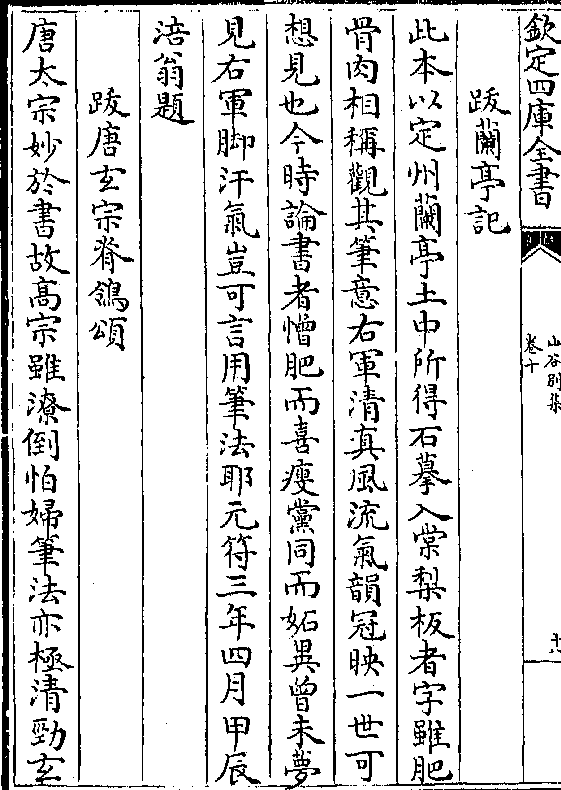 欽定四庫全書
山谷别集
卷十
十八
跋蘭亭記
此本以定州蘭亭土中所得石摹入棠梨板者字雖肥
骨肉相稱觀其筆意右軍清真風流氣韻冠映一世可
想見也今時論書者憎肥而喜瘦黨同而妬異曾未夢
見右軍脚汗氣豈可言用筆法耶元符三年四月甲辰
涪翁題
跋唐玄宗脊鴒頌
唐太宗妙於書故髙宗雖潦倒怕婦筆法亦極清勁玄